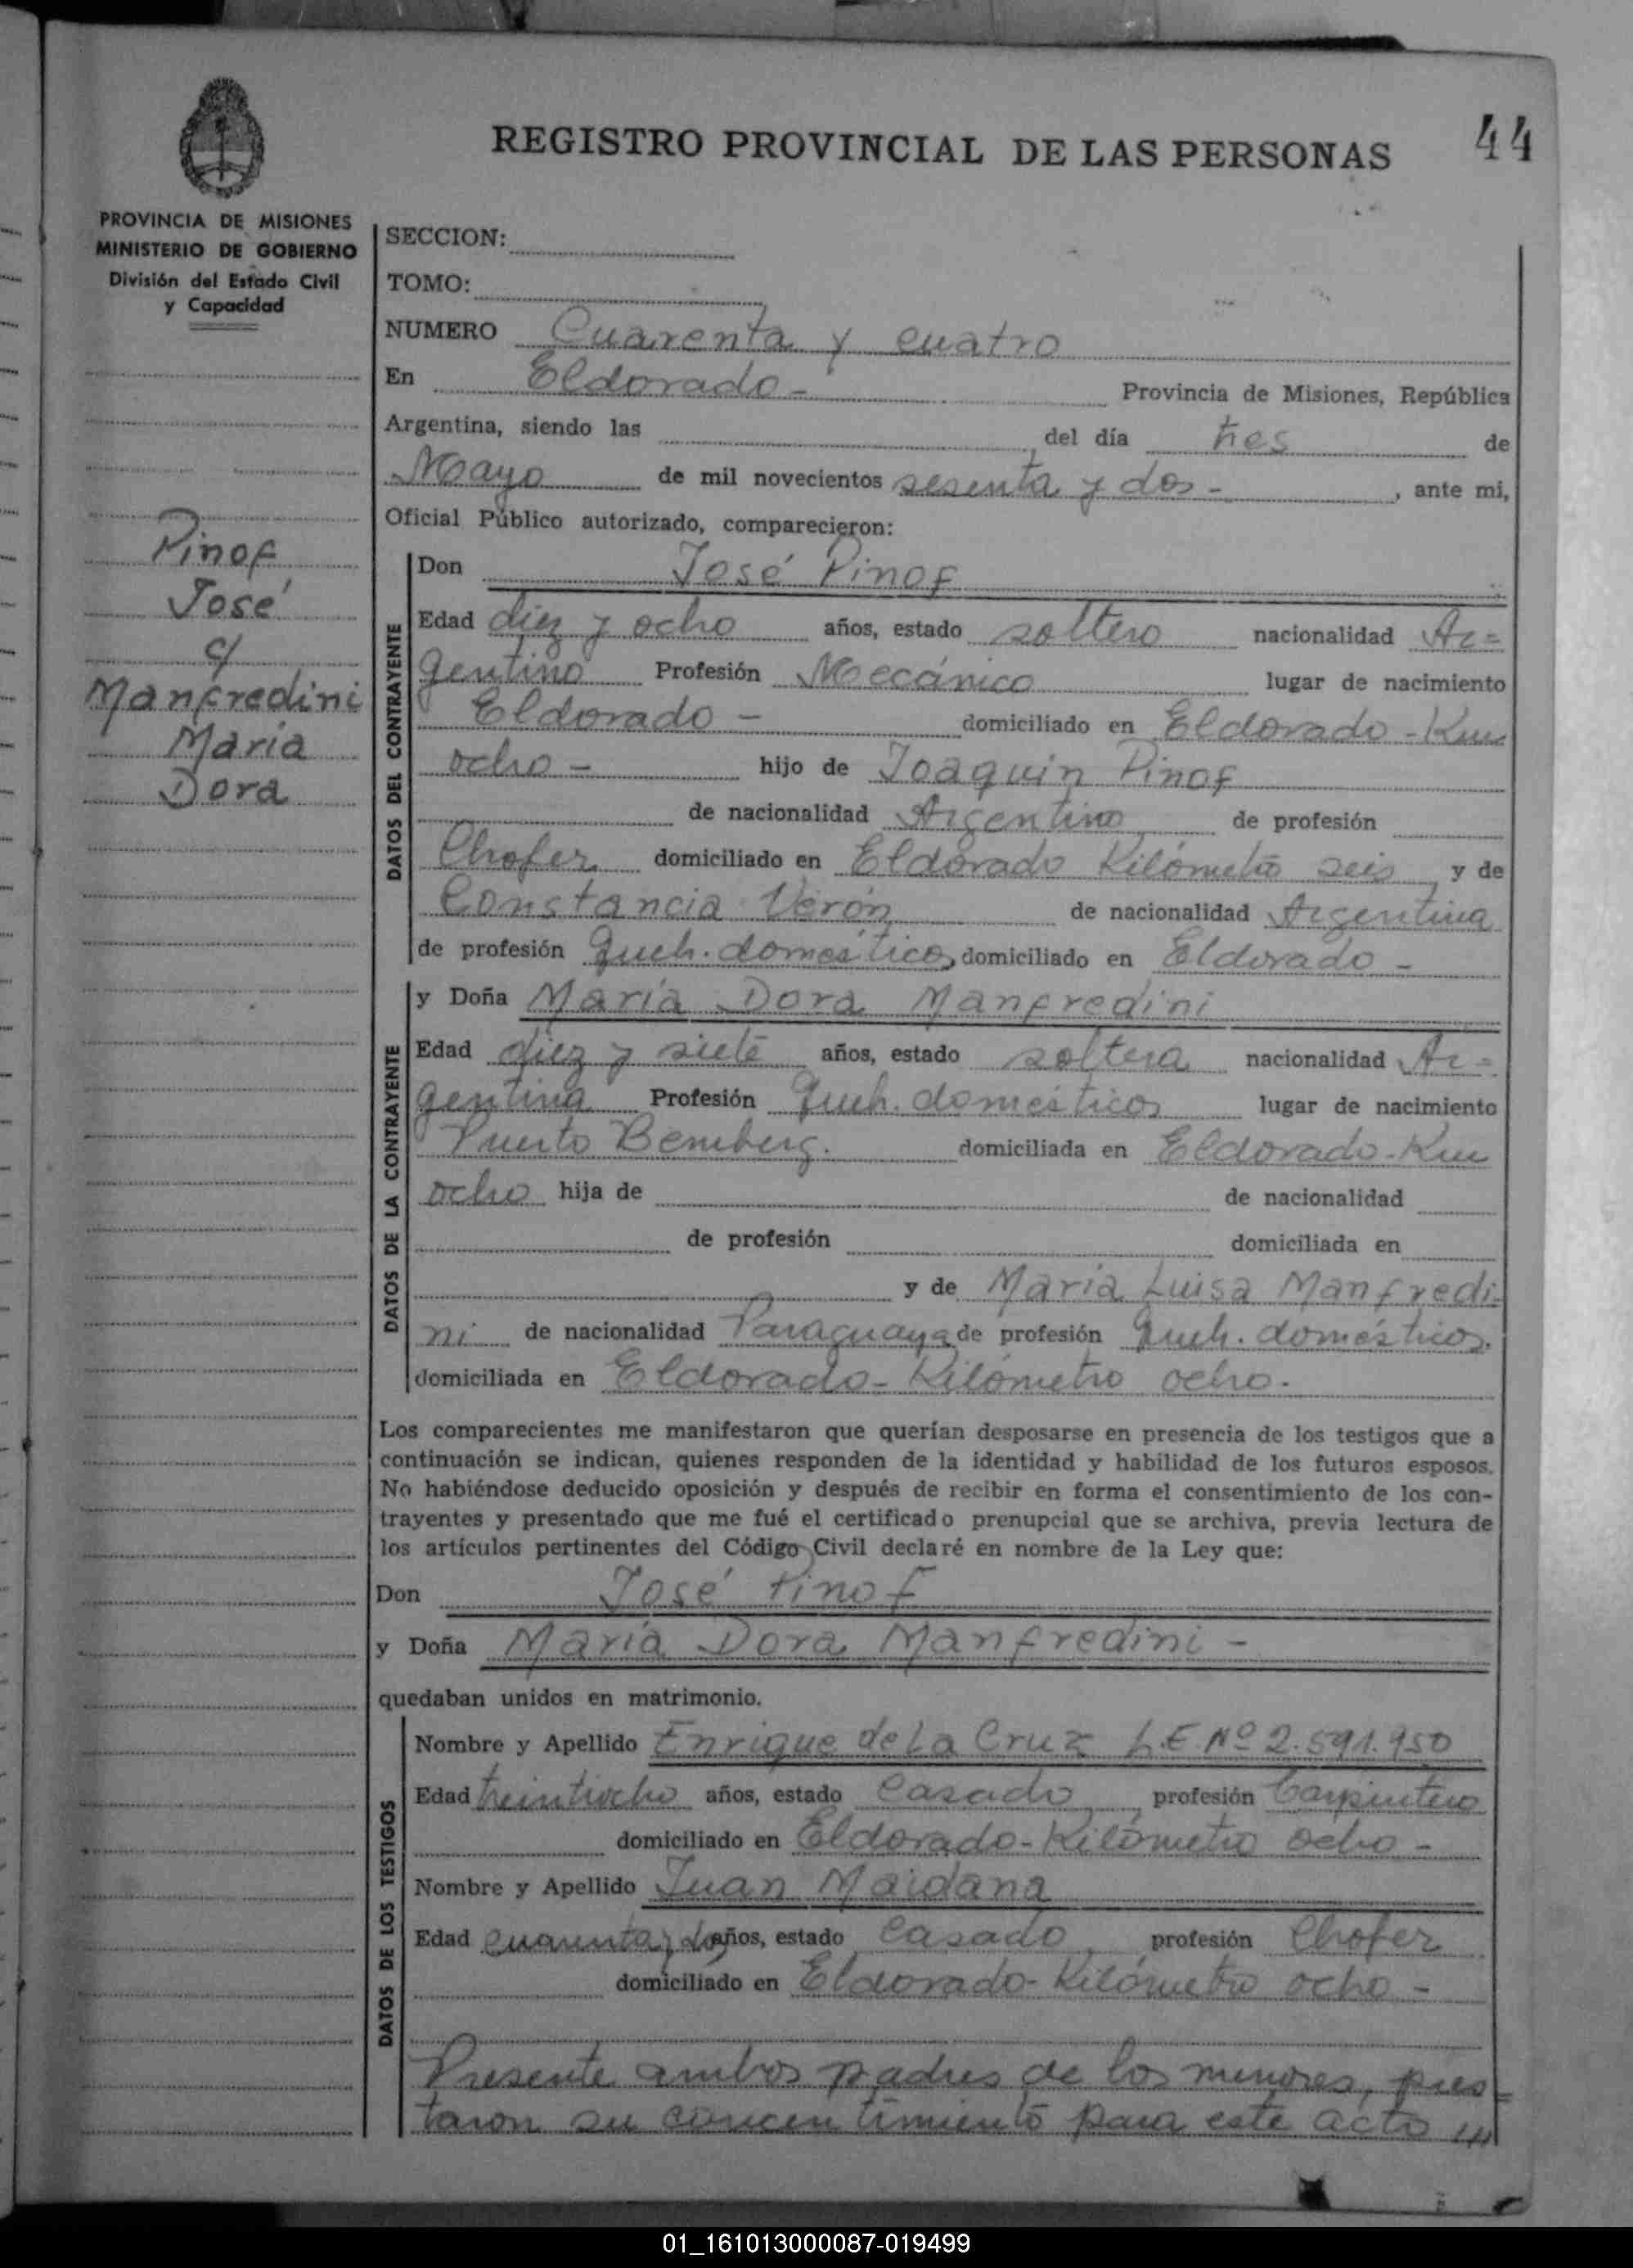 REGISTRO PROVINCIAL DE LAS PERSONAS 44
PROVINCIA DE MISIONES
MINISTERIO DE GOBIERNO
División del Estado Civil
y Capacidad
Pinof
José
c/
Manfredini
María
Dora
SECCION:
TOMO:
NUMERO Cuarenta y cuatro
En Eldorado - Provincia de Misiones, República
Argentina, siendo las del día tres de
Mayo de mil novecientos sesenta y dos - , ante mi,
Oficial Público autorizado, comparecieron:
DATOS DEL CONTRAYENTE
Don José Pinof
Edad diez y ocho años, estado soltero nacionalidad Ar=
gentino Profesión Mecánico lugar de nacimiento
Eldorado - domiciliado en Eldorado - Km
ocho - hijo de Joaquin Pinof
de nacionalidad Argentino de profesión
Chofer domiciliado en Eldorado Kilómetro seis y de
Constancia Verón de nacionalidad Argentina
de profesión Queh. domesticos domiciliado en Eldorado -
DATOS DE LA CONTRAYENTE
y Doña María Dora Manfredini
Edad diez y siete años, estado soltera nacionalidad Ar=
gentina Profesión Queh. domésticos lugar de nacimiento
Puerto Bemberg. domiciliada en Eldorado - Km
ocho hija de de nacionalidad
de profesión domiciliada en
y de María Luisa Manfredi-
ni de nacionalidad Paraguaya de profesión Queh. domésticos.
domiciliada en Eldorado - Kilómetro ocho.
Los comparecientes me manifestaron que querían desposarse en presencia de los testigos que a
continuación se indican, quienes responden de la identidad y habilidad de los futuros esposos.
No habiéndose deducido oposición y después de recibir en forma el consentimiento de los con-
trayentes y presentado que me fué el certificado prenupcial que se archiva, previa lectura de
los artículos pertinentes del Código Civil declaré en nombre de la Ley que:
Don José Pinof
y Doña María Dora Manfredini -
quedaban unidos en matrimonio.
DATOS DE LOS TESTIGOS
Nombre y Apellido Enrique de La Cruz L.E. Nº 2.591.950
Edad treintiocho años, estado Casado profesión Carpintero
domiciliado en Eldorado - Kilómetro ocho -
Nombre y Apellido Juan Maidana
Edad cuarenta y dos años, estado Casado profesión Chofer
domiciliado en Eldorado - Kilómetro ocho -
Presente ambos padres de los menores, pres=
taron su concentimiento para este acto ///
01_161013000087-019499